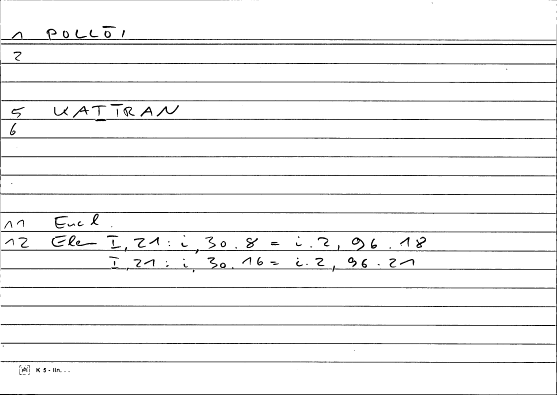 1 POLLŌI
2
5 KAṮT̄RAN
6
11 Eucl.
12 Elem I, 21 : i, 30.8 = i.2, 96.18
I, 21 : i, 30.16 = i.2, 96.21
K 5 - lin...